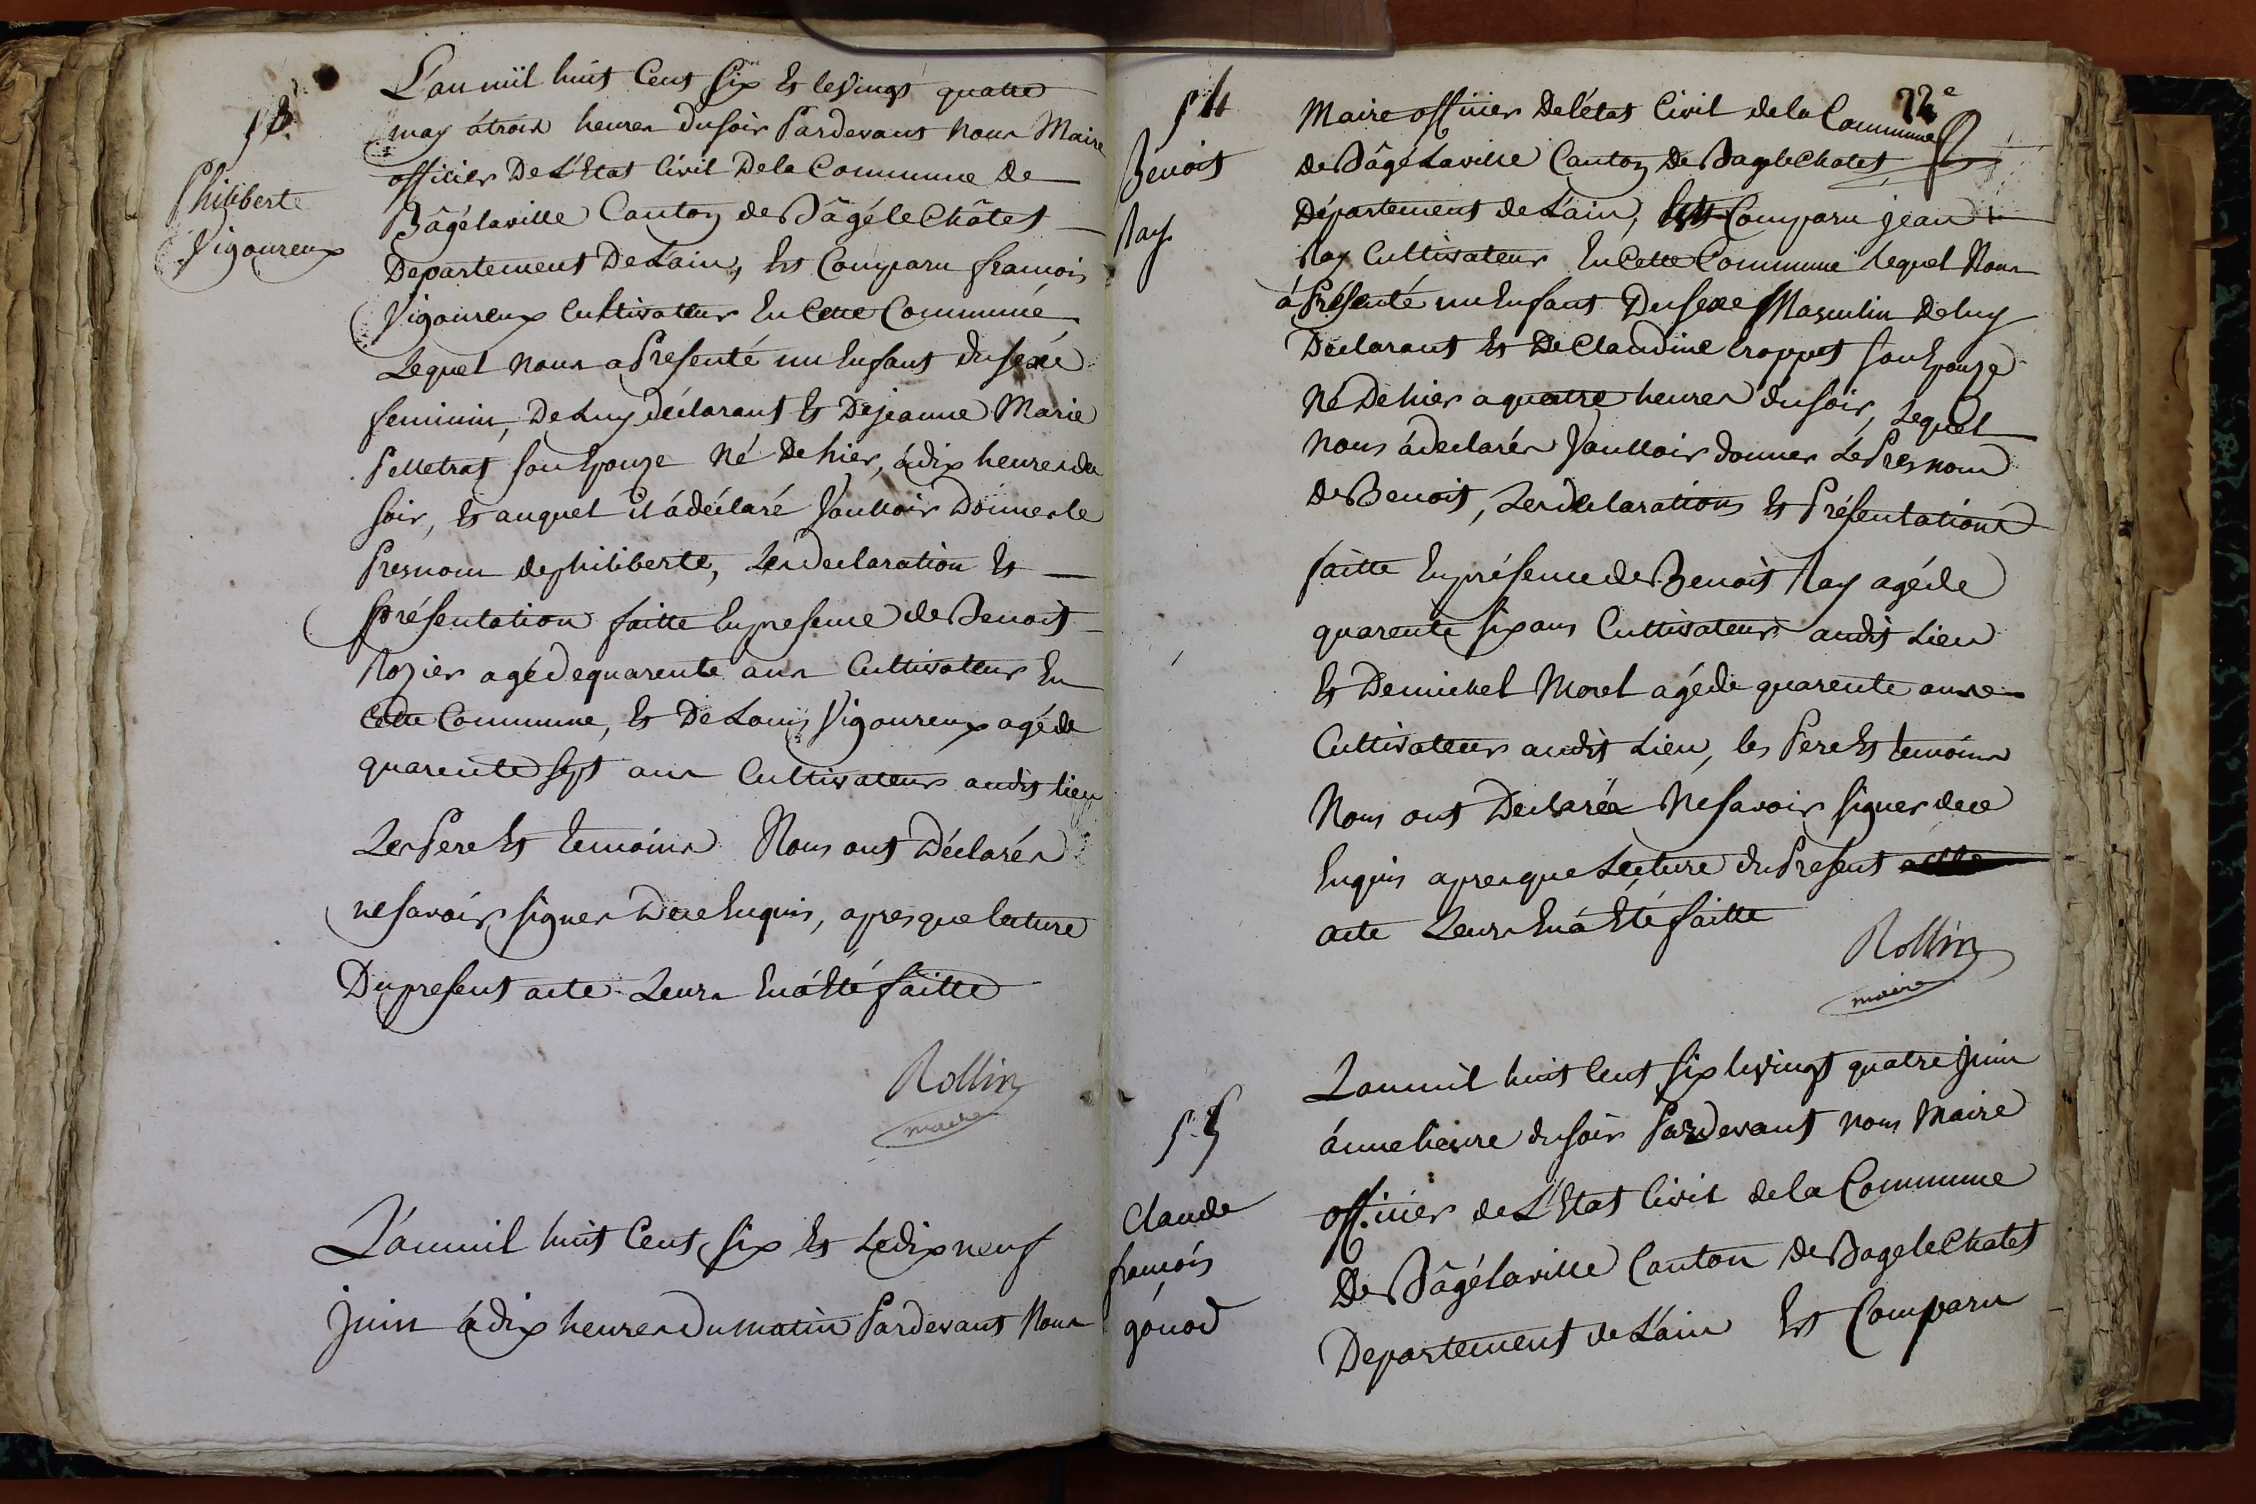 53.
Philiberte
Vigoureux
L'an mil huit Cent six Et le vingt quatre
may á trois heures du soir Pardevant Nous Maire
officier De L'Etat Civil De la Commune De
Bâgélaville Canton de Bâgé le Châtet
Departement De Lain, Est Comparu francois
Vigoureux Cultivateur En Cette Commune,
Lequel Nous a Presenté un Enfant du sexe
feminin, De Luy déclarant Et De jeanne Marie
Pelletrat son Epouze Né De hier, á dix heures du
soir, Et auquel il á déclaré Voulloir Donner le
Presnom de philiberte, Les declaration Et
Présentation faitte En presence de Benoit
Rozier agé de quarente ans Cultivateur En
Cette Commune, Et De Louis Vigoureux agé de
quarente sept ans Cultivateur audit lieu
Les Pere Et temoins Nous ont Déclarés
ne savoir signer De ce Enquis, apres que lecture
Du present acte Leurs En á Eté faitte
Rollin
maire
L'an mil huit Cent six Et Le dix neuf
juin á dix heures Du matin Pardevant Nous
72e
54
Benoit
Ray
Maire officier De l'état Civil de la Commune
de Bâgé Laville Canton De Bage le Chatet
Département de Lain, Est Comparu jean
Ray Cultivateur En Cette Commune lequel Nous
á Présenté un Enfant Du sexe Masculin De luy
Déclarant Et De Claudine Croppet son Epouze
Né De hier a quatre heures du soir, Lequel
Nous á declarér Voulloir donner Le Presnom
de Benoit, Les declarations Et Présentations
faitte En présence de Benoit Ray agé de
quarente six ans Cultivateur audit Lieu
Et De michel Morel agé de quarente ans
Cultivateur audit Lieu, les Pere Et temoins
Nous ont Declarés Ne savoir signer de ce
Enquis apres que Lecture du Present acte
acte Leurs En á Eté faitte
Rollin
maire
55
Claude
francois
gonod
L'an mil huit Cent six le vingt quatre juin
á une heure du soir Pardevant nous Maire
officier de L'Etat Civil de la Commune
De Bâgélaville Canton De Bage le Chatet
Departement de Lain Est Comparu